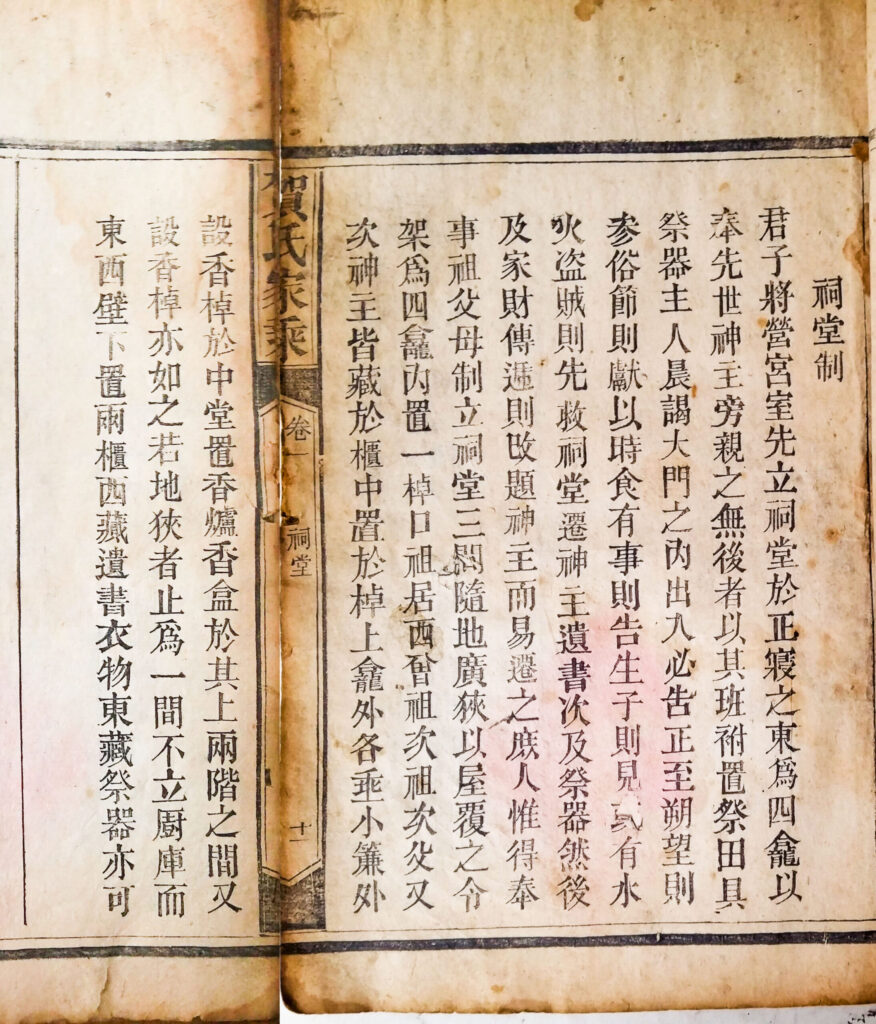 祠堂制
君子將營宮室先立祠堂於正寢之東爲四龕以
奉先世神主旁親之無後者以其班祔置祭田具
祭器主人晨謁大門之內出入必告正至朔望則
參俗節則獻以時食有事則告生子則見或有水
火盜賊則先救祠堂遷神主遺書次及祭器然後
及家財傳遞則改題神主而易遷之庶人惟得奉
事祖父母制立祠堂三間隨地廣狹以屋覆之令
架爲四龕內置一棹口祖居西曾祖次祖次父又
次神主皆藏於櫃中置於棹上龕外各垂小簾外
賀氏家乘
卷一
祠堂
十一
設香棹於中堂置香爐香盒於其上兩階之間又
設香棹亦如之若地狹者止爲一間不立厨庫而
東西壁下置兩櫃西藏遺書衣物東藏祭器亦可